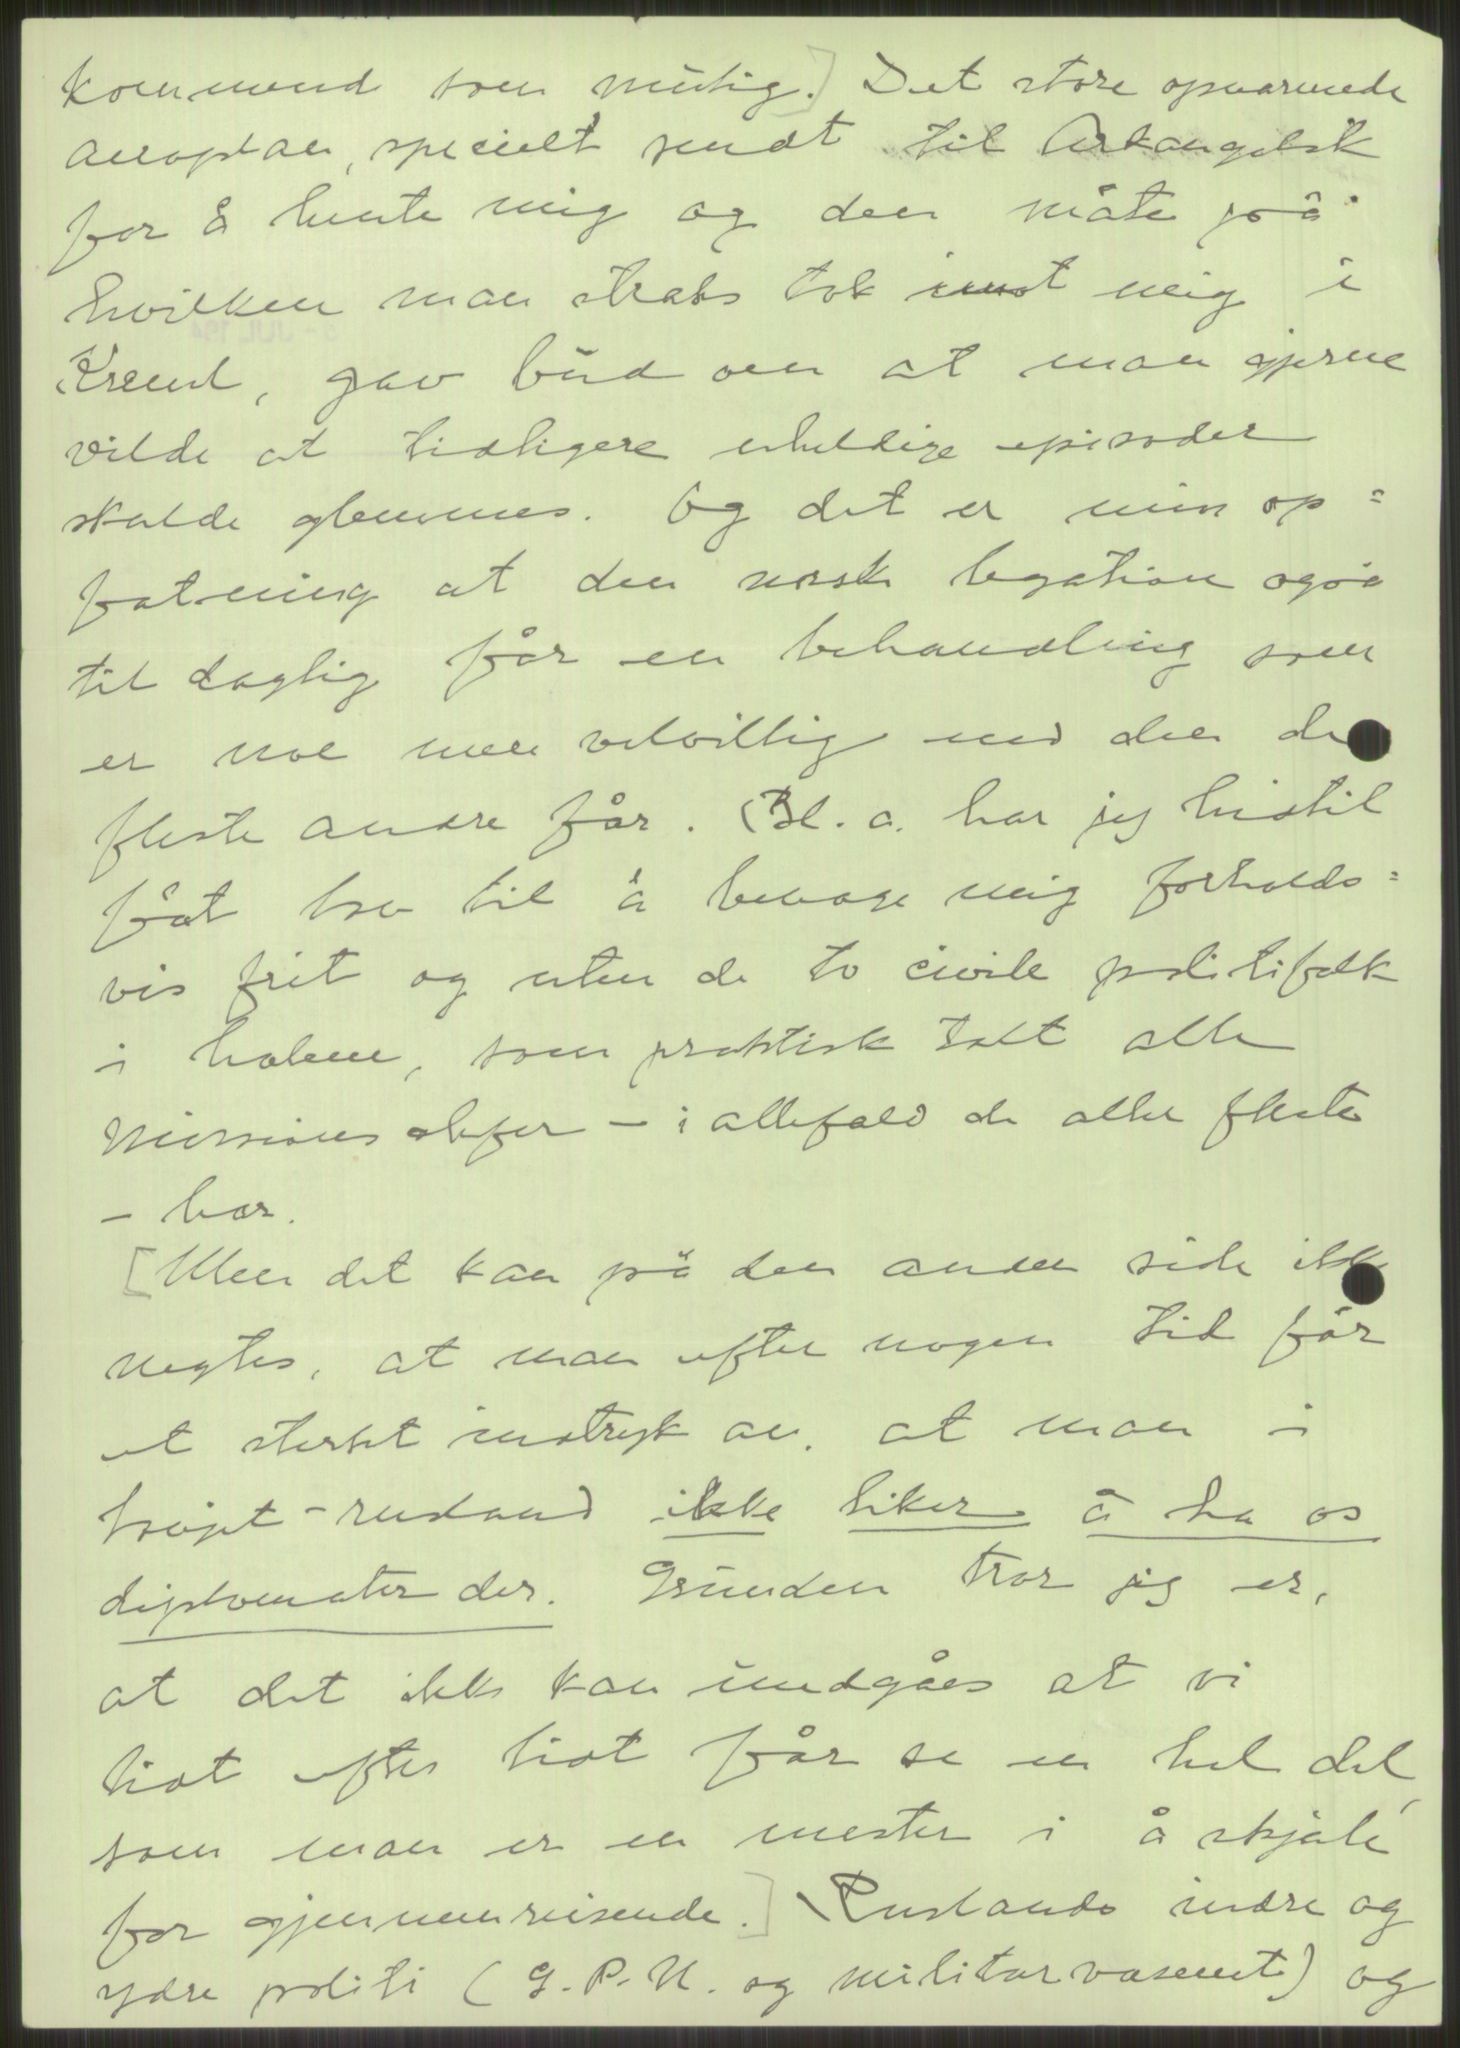 kommend som mulig.] Det store opvarmede
aeroplan, specielt sendt til Arkangelsk
for å hente mig og den måte på
hvilken man straks tok imot mig i
Kreml, gav bud om at man gjerne
vilde at tidligere uheldige episoder
skulde glemmes. Og det er min op=
fatning at den norske legation også
til daglig får en behandling som
er noe mere velvillig end den de
fleste andre får. (Bl. a. har jeg hidtil
fåt lov til å bevæge mig forholds=
vis frit og uten de to civile politifolk
i halene, som praktisk talt alle
missionschefer – i allefald de aller fleste
– har.
[Men det kan på den anden side ikke
negtes, at man efter nogen tid får
et sterkt indtryk av, at man i
Sovjet-rusland ikke liker å ha os
diplomater der. Grunden tror jeg er,
at det ikke kan undgåes at vi
litt efter litt får se en hel del,
som man er en mester i å skjule
for gjennemreisende.] Ruslands indre og
ydre politi (G.P.U. og militærvæsenet) og